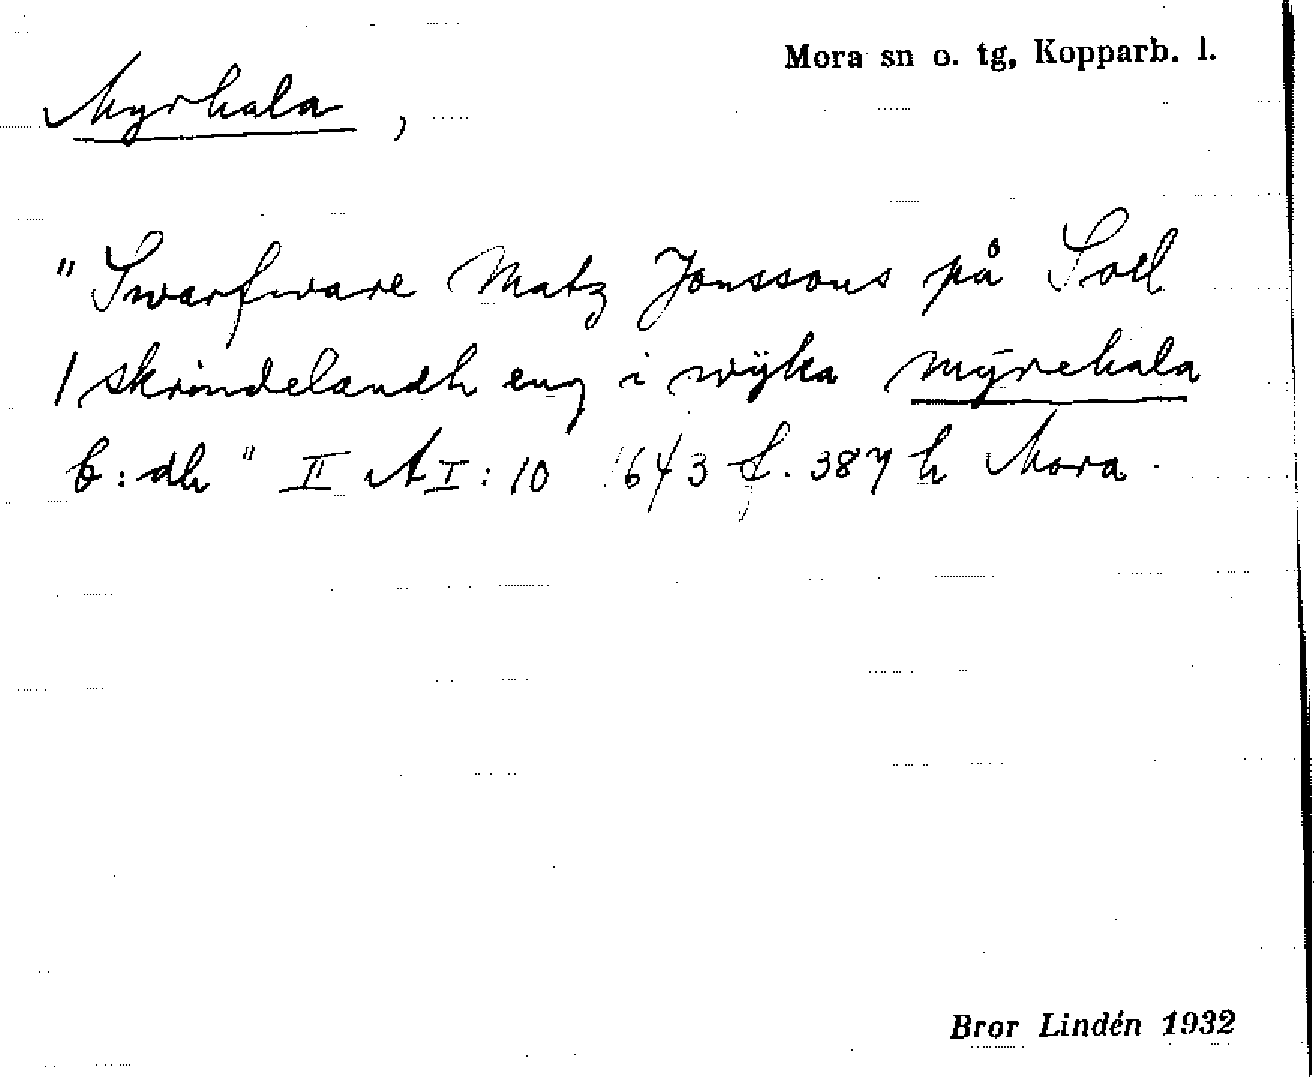 Mora sn o. tg, Kopparb. l.
Myrhala,
"Swarfware Matz Jonssons på Soel
1 skrindelandh eng i wÿka mÿrehala
b:dh" II A I:10 1643 f. 387 h Mora.
Bror Lindén 1932